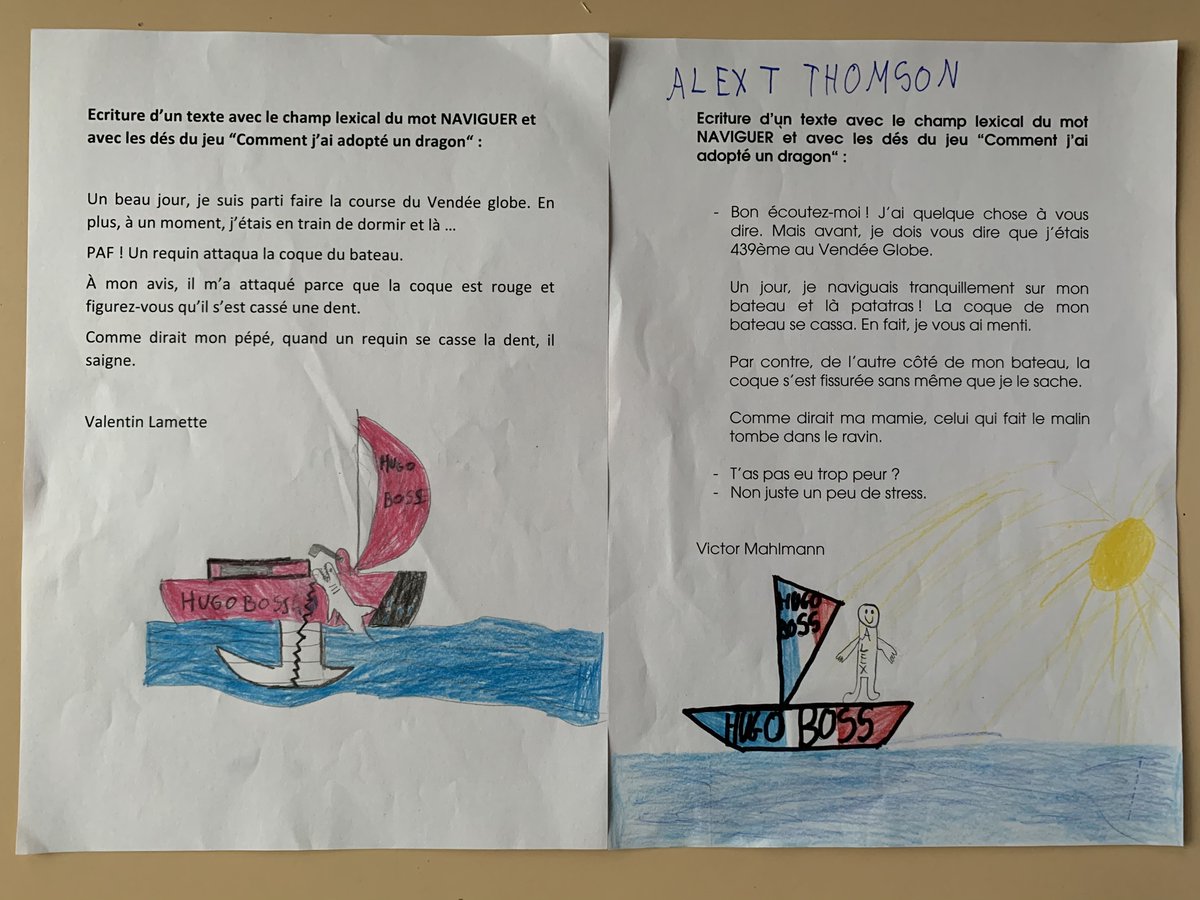 Ecriture d'un texte avec le champ lexical du mot NAVIGUER et
avec les dés du jeu "Comment j'ai adopté un dragon" :
Un beau jour, je suis parti faire la course du Vendée globe. En
plus, à un moment, j'étais en train de dormir et là …
PAF ! Un requin attaqua la coque du bateau.
À mon avis, il m'a attaqué parce que la coque est rouge et
figurez-vous qu'il s'est cassé une dent.
Comme dirait mon pépé, quand un requin se casse la dent, il
saigne.
Valentin Lamette
HUGO
BOSS
HUGO BOSS
ALEX T THOMSON
Ecriture d'un texte avec le champ lexical du mot
NAVIGUER et avec les dés du jeu "Comment j'ai
adopté un dragon" :
- Bon écoutez-moi ! J'ai quelque chose à vous
dire. Mais avant, je dois vous dire que j'étais
439ème au Vendée Globe.
Un jour, je naviguais tranquillement sur mon
bateau et là patatras ! La coque de mon
bateau se cassa. En fait, je vous ai menti.
Par contre, de l'autre côté de mon bateau, la
coque s'est fissurée sans même que je le sache.
Comme dirait ma mamie, celui qui fait le malin
tombe dans le ravin.
- T'as pas eu trop peur ?
- Non juste un peu de stress.
Victor Mahlmann
HUGO
BOSS
ALEX
HUGO BOSS